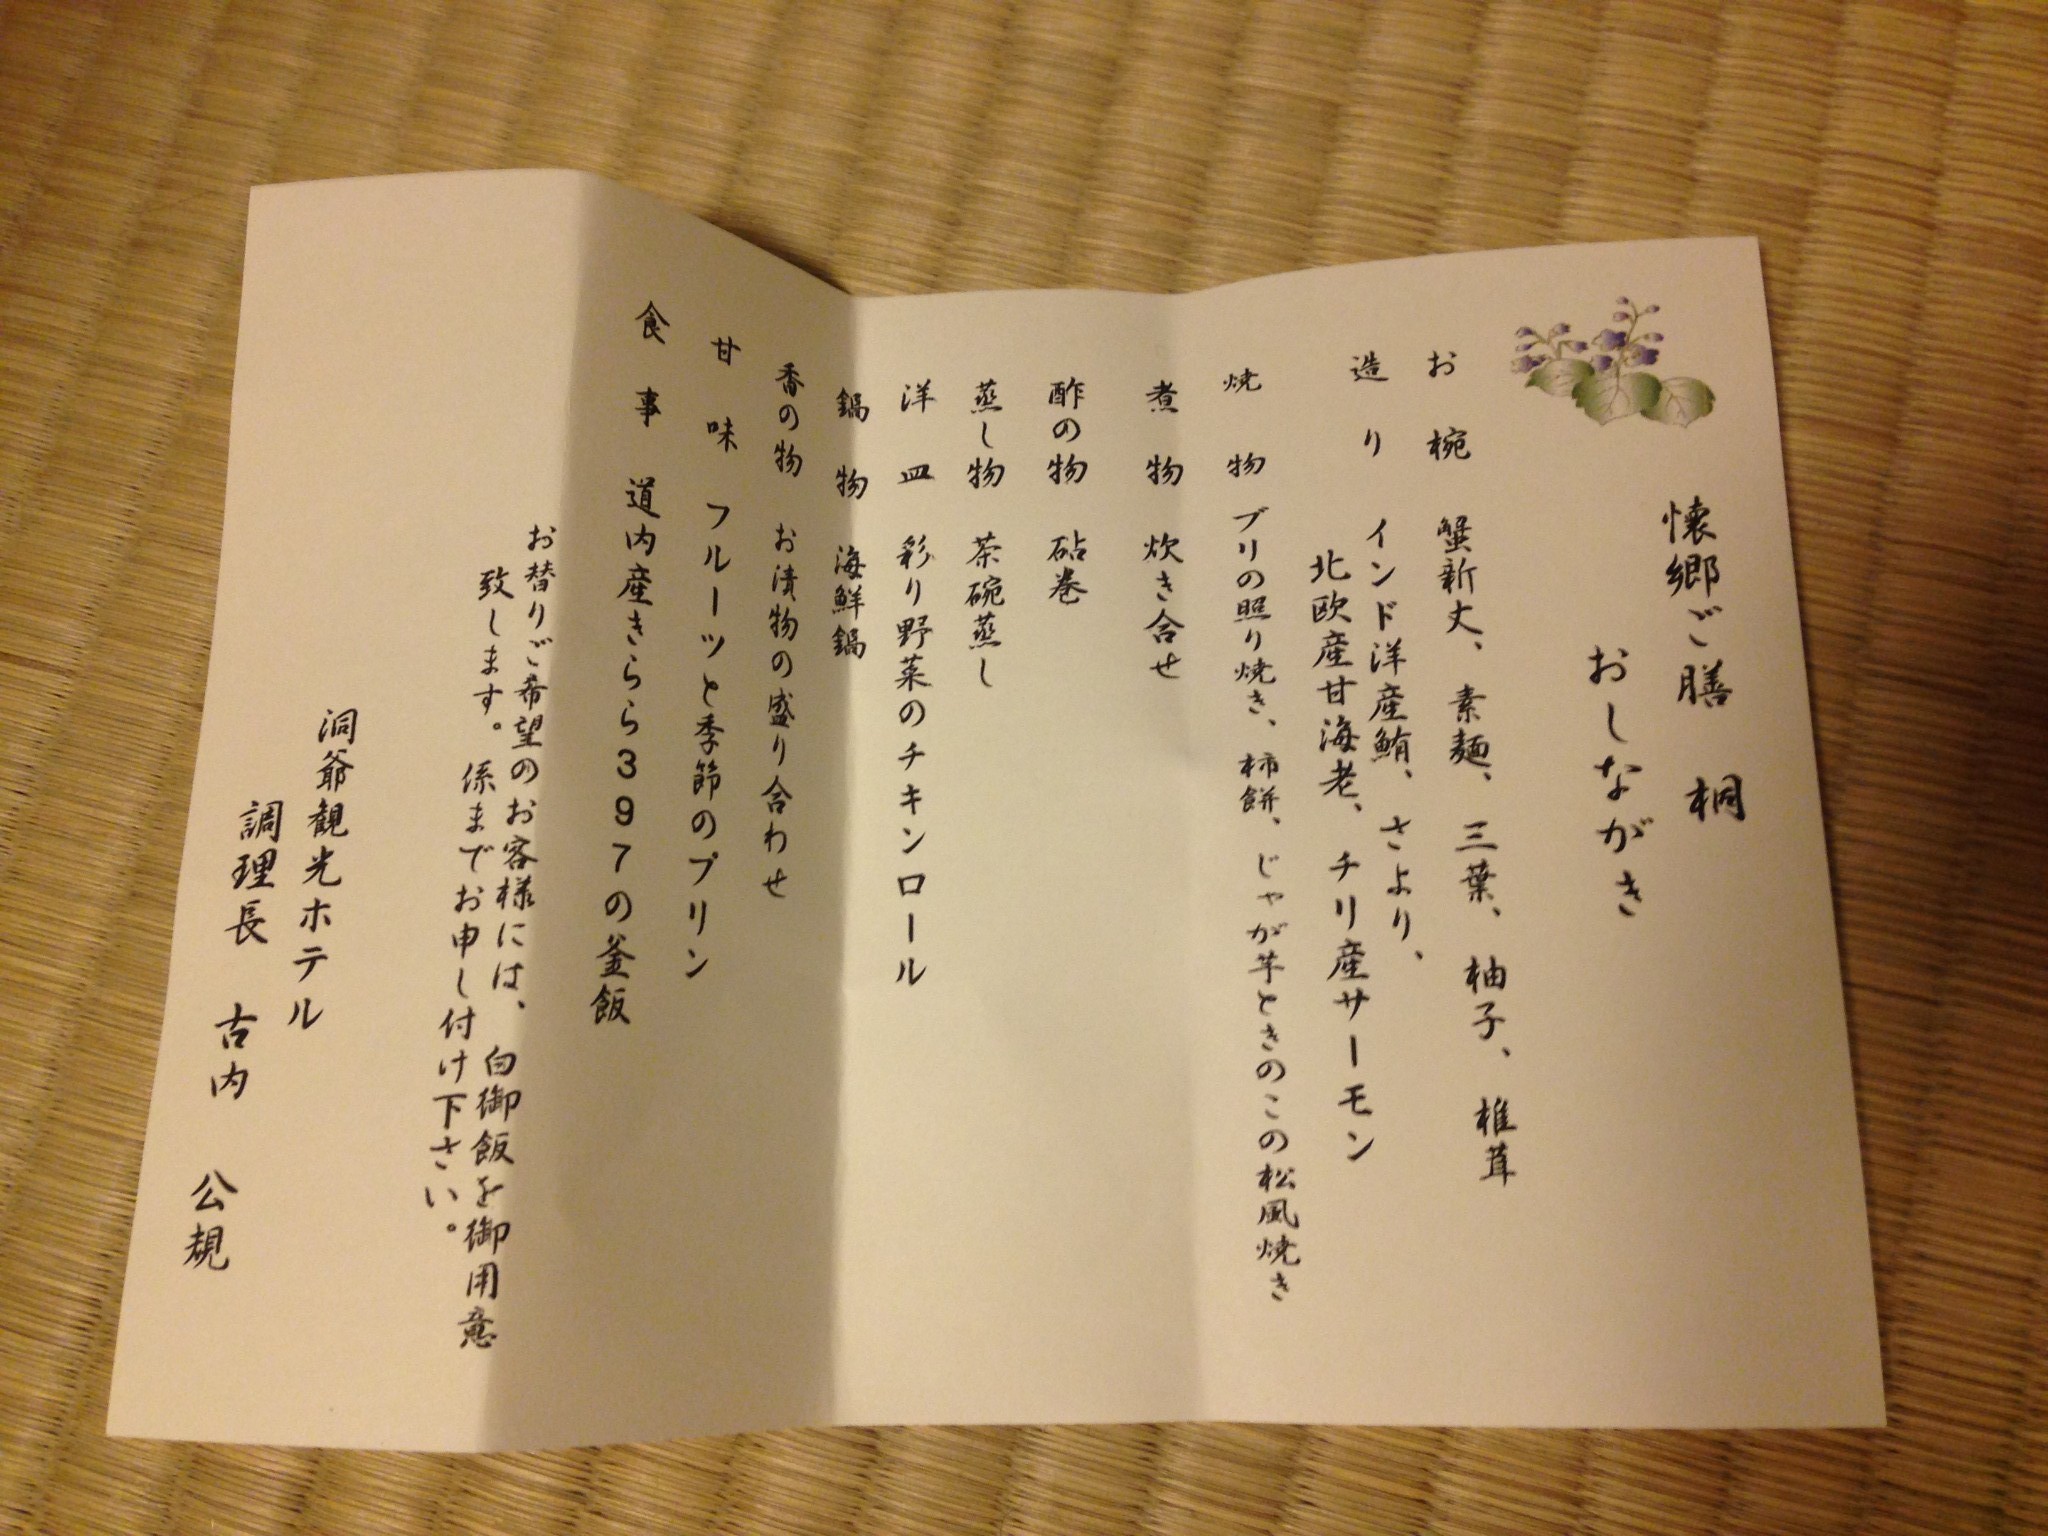 懐郷ご膳　桐
おしながき
お椀　蟹新丈、素麺、三葉、柚子、椎茸
造り　インド洋産鮪、さより、
北欧産甘海老、チリ産サーモン
焼物　ブリの照り焼き、柿餅、じゃが芋ときのこの松風焼き
煮物　炊き合せ
酢の物　砧巻
蒸し物　茶碗蒸し
洋皿　彩り野菜のチキンロール
鍋物　海鮮鍋
香の物　お漬物の盛り合わせ
甘味　フルーツと季節のプリン
食事　道内産きらら397の釜飯
お替りご希望のお客様には、白御飯を御用意
致します。係までお申し付け下さい。
洞爺観光ホテル
調理長　古内　公規